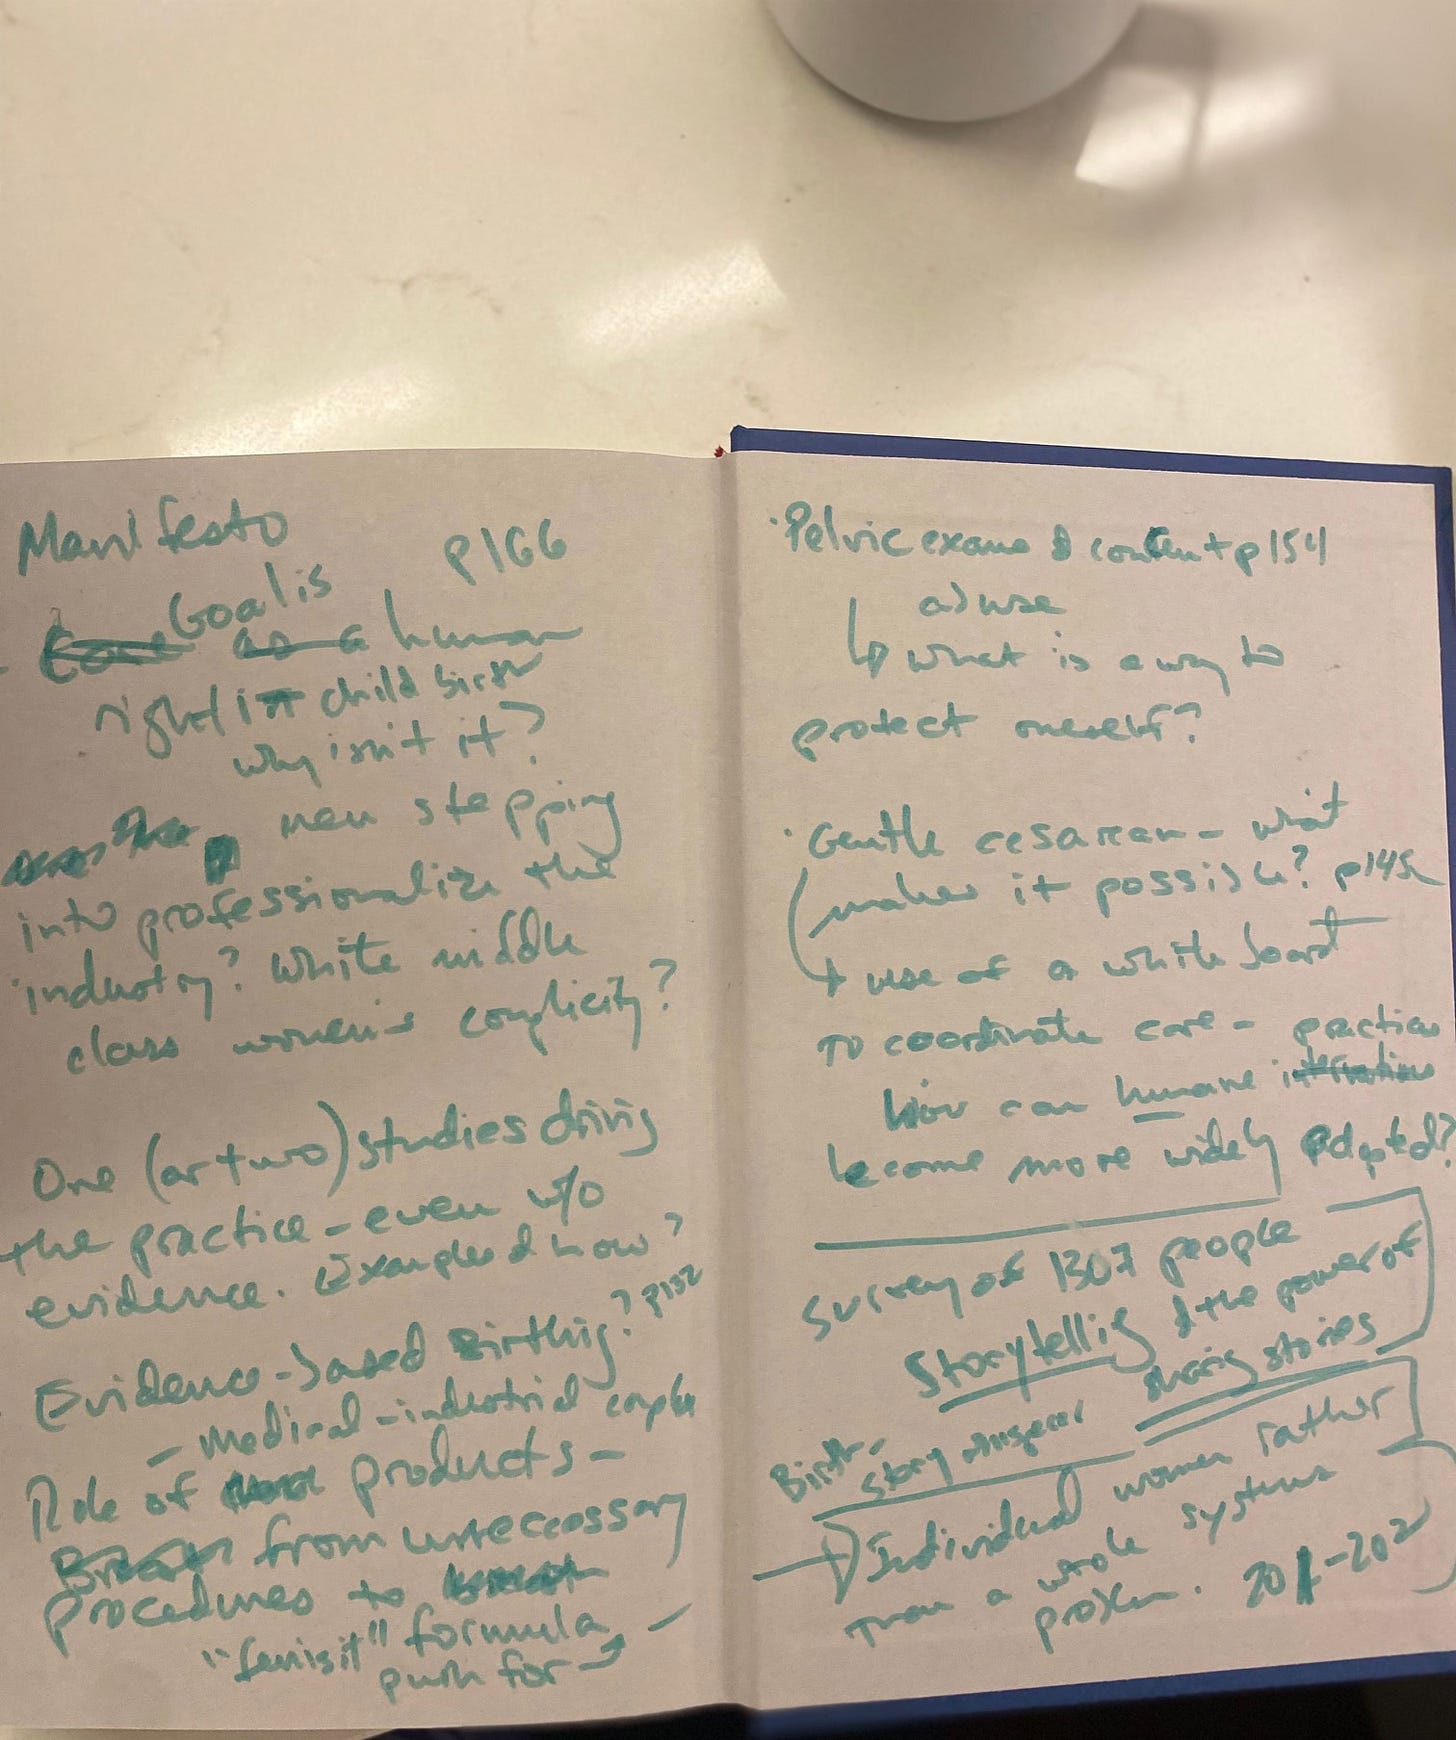 Manifesto
p166
Goal is
as a human
right in child birth
why isn't it?
men stepping
into professionalize the
industry? White middle
class women's complicity?
One (or two) studies driving
the practice - even w/o
evidence. Examples & how?
Evidence-based Birthing? p132
- Medical-industrial
Role of products -
from unneccessary
procedures to
formula
push for
· Pelvic exams & p154
abuse
↳ what is a way to
protect oneself?
· Gentle cesarean - what
makes it possible?
+ use of a white board
to coordinate care - practices
How can humane
become more widely adopted?
Survey of 1307 people
Storytelling & the power of
sharing stories
Birth
story
→ Individual women rather
than a whole systems
problem. 201-202